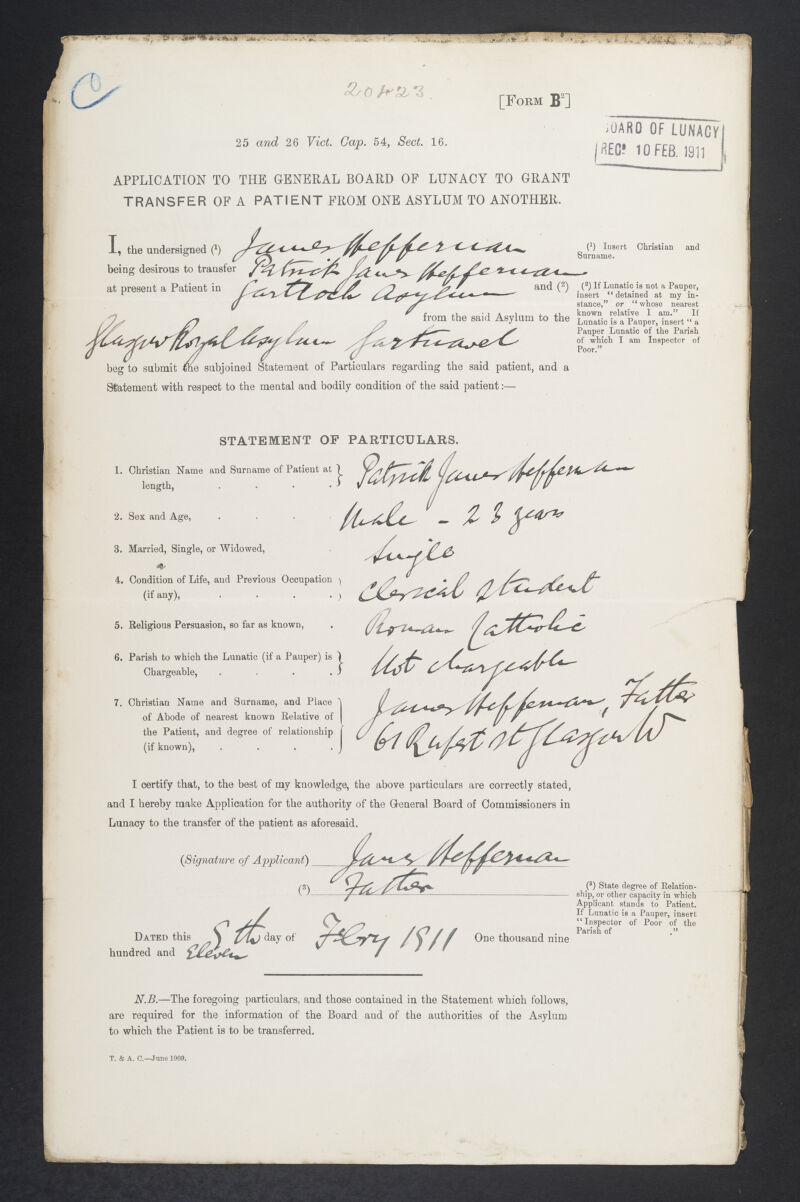 20423
[FORM B²]
BOARD OF LUNACY
REC^D 10 FEB. 1911
25 and 26 Vict. Cap. 54, Sect. 16.
APPLICATION TO THE GENERAL BOARD OF LUNACY TO GRANT
TRANSFER OF A PATIENT FROM ONE ASYLUM TO ANOTHER.
I, the undersigned (¹) James Heffernan
being desirous to transfer Patrick James Heffernan
at present a Patient in Gartloch Asylum and (²)
from the said Asylum to the
Glasgow Royal Asylum Gartnavel
beg to submit the subjoined Statement of Particulars regarding the said patient, and a
Statement with respect to the mental and bodily condition of the said patient:—
(¹) Insert Christian and
Surname.
(²) If Lunatic is not a Pauper,
insert "detained at my in-
stance," or "whose nearest
known relative I am." If
Lunatic is a Pauper, insert "a
Pauper Lunatic of the Parish
of which I am Inspector of
Poor."
STATEMENT OF PARTICULARS.
1. Christian Name and Surname of Patient at
length, . . . . Patrick James Heffernan
2. Sex and Age, . . . . Male - 23 years
3. Married, Single, or Widowed, . Single
4. Condition of Life, and Previous Occupation
(if any), . . . . Clerical Student
5. Religious Persuasion, so far as known, . Roman Catholic
6. Parish to which the Lunatic (if a Pauper) is
Chargeable, . . . . Not chargeable
7. Christian Name and Surname, and Place
of Abode of nearest known Relative of
the Patient, and degree of relationship
(if known), . . . .
James Heffernan, Father
61 Rupert St Glasgow W
I certify that, to the best of my knowledge, the above particulars are correctly stated,
and I hereby make Application for the authority of the General Board of Commissioners in
Lunacy to the transfer of the patient as aforesaid.
(Signature of Applicant) James Heffernan
(³) Father
(³) State degree of Relation-
ship, or other capacity in which
Applicant stands to Patient.
If Lunatic is a Pauper, insert
"Inspector of Poor of the
Parish of ."
DATED this 8th day of Febry 1911 One thousand nine
hundred and Eleven
N.B.—The foregoing particulars, and those contained in the Statement which follows,
are required for the information of the Board and of the authorities of the Asylum
to which the Patient is to be transferred.
T. & A. C.—June 1909.